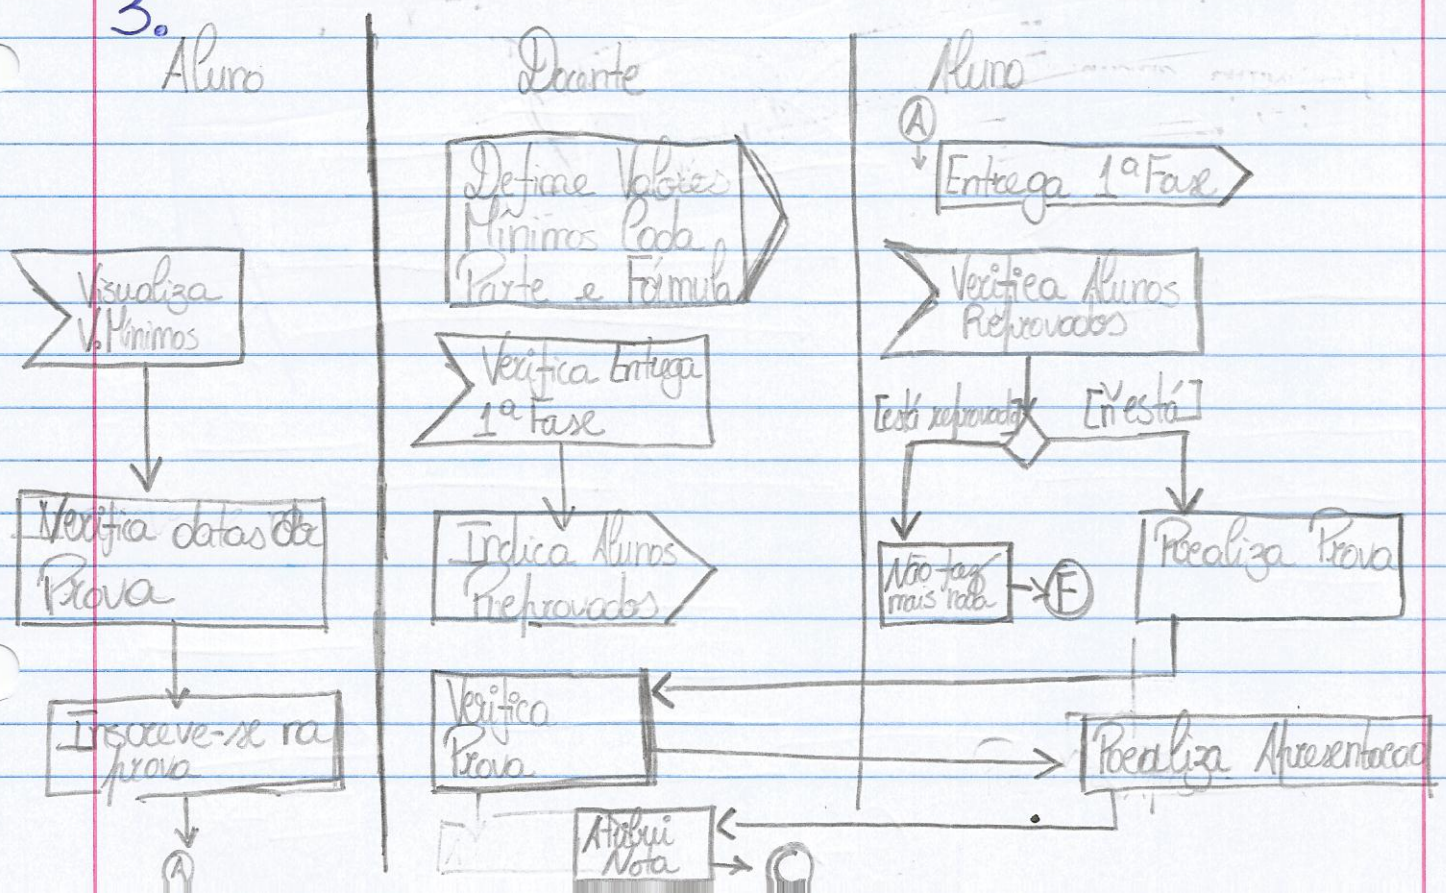 3.
Aluno
Docente
Aluno
Visualiza
V.Mínimos
Verifica datas da
Prova
Inscreve-se na
prova
A
Define Valores
Mínimos Cada
Parte e Fórmula
Verifica Entrega
1ª Fase
Indica Alunos
Reprovados
Verifica
Prova
Atribui
Nota
A
Entrega 1ª Fase
Verifica Alunos
Reprovados
[está reprovado]
[ñ está]
Não faz
mais nada
F
Realiza Prova
Realiza Apresentacao